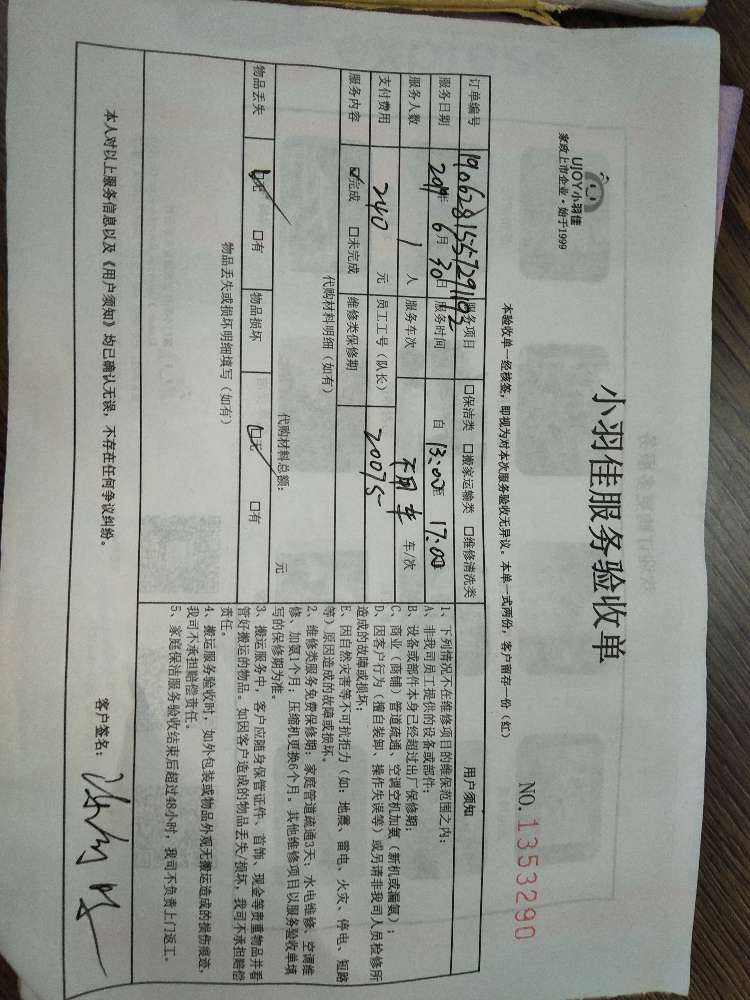 UJOY小羽佳
家政上市企业·始于1999
小羽佳服务验收单
NO.1353290
本验收单一经核签，即视为对本次服务验收无异议。本单一式两份，客户留存一份（红）
订单编号 1906281557291192 服务项目 □保洁类 □搬家运输类 □维修清洗类
服务日期 2019年6月30日 服务时间 自 13:00至 17:00
服务人数 1 人 服务车次 不用车 车/次
支付费用 240 元 员工工号（队长） 20075
服务内容 ☑完成 □未完成 维修类保修期
代购材料明细（如有）
代购材料总额： 元
物品丢失 ☑无 □有 物品损坏 ☑无 □有
物品丢失或损坏明细填写（如有）
用户须知
1、下列情况不在维修项目的维保范围之内：
A、非我司员工提供的设备或部件；
B、设备或部件本身已经超过出厂保修期；
C、商业（商铺）管道疏通、空调空机加氨（新机或漏氨）；
D、因客户行为（擅自装卸、操作失误等）或另请非我司人员检修所
造成的故障或损坏；
E、因自然灾害等不可抗拒力（如：地震、雷电、火灾、停电、短路
等）原因造成的故障或损坏。
2、维修类服务免费保修期：家庭管道疏通3天；水电维修、空调维
修、加氨1个月；压缩机更换6个月。其他维修项目以服务验收单填
写的保修期为准。
3、搬运服务中，客户应随身保管证件、首饰、现金等贵重物品并看
管好搬运的物品。如因客户造成的物品丢失/损坏，我司不承担赔偿
责任。
4、搬运服务验收时，如外包装或物品外观无搬运造成的损伤痕迹，
我司不承担赔偿责任。
5、家庭保洁服务验收结束后超过48小时，我司不负责上门返工。
本人对以上服务信息以及《用户须知》均已确认无误，不存在任何争议纠纷。
客户签名：